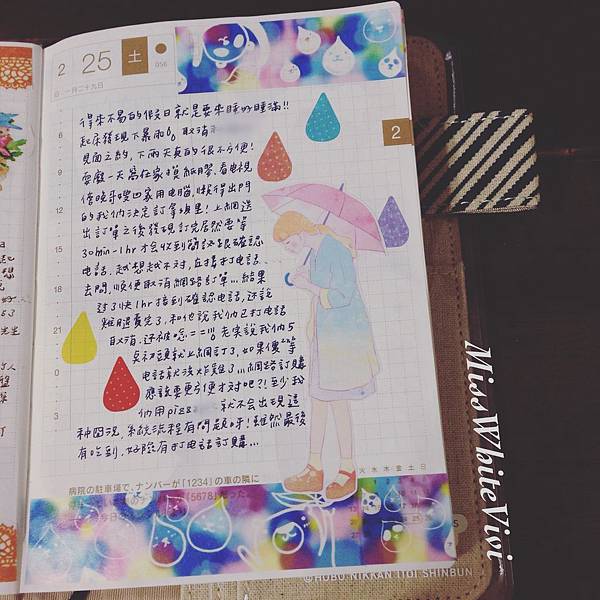 2 25 土
056
一月二十九日
2
得來不易的假日就是要來睡好睡滿!!
起床發現下暴雨
取消
見面之約，下雨天真的很不方便!
耍廢一天窩在家摸紙膠、看電視
傍晚哥
回家用電腦，懶得出門
的我們決定訂拿坡里! 上網送
出訂單之後發現訂完居然要等
30min-1hr才會收到簡訊跟確認
電話，越想越不對，直接打電話
去問，順便取消網路訂單...結果
過了快1hr接到確認電話，還說
雞腿賣完了，和他說我們已打電話
取消，還被唸==||| 老實說我們5
點初頭就上網訂了，如果傻傻等
電話就沒炸雞了...網路訂購
應該要更方便才對吧?! 至少我
們用pizz
就不會出現這
種囧況，系統流程有問題呀! 雖然最後
有吃到，好險有打電話訂購...
病院の駐車場で、ナンバーが「1234」の車の隣に
「5678」
火 水 木 金 土 日
©HOBO NIKKAN ITOI SHINBUN
MissWhiteVivi